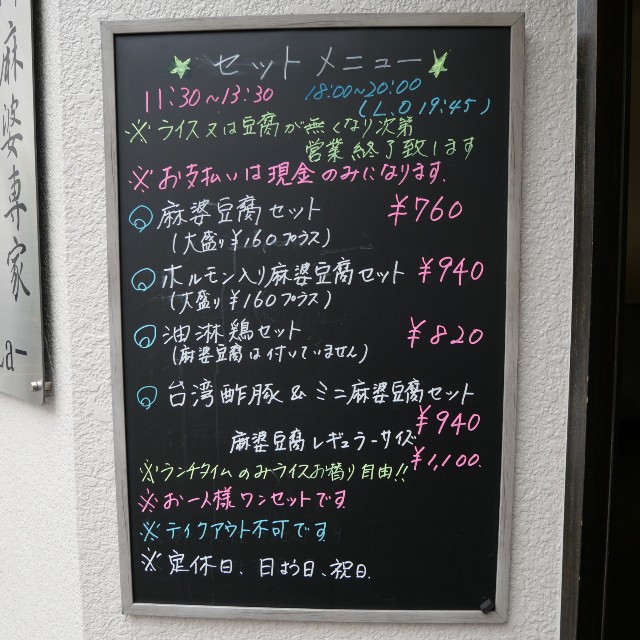 麻婆専家
セットメニュー
11:30~13:30
18:00~20:00
(L.O 19:45)
※ライス又は豆腐が無くなり次第
営業終了致します
※お支払いは現金のみになります.
麻婆豆腐セット ¥760
(大盛り¥160プラス)
ホルモン入り麻婆豆腐セット ¥940
(大盛り¥160プラス)
油淋鶏セット ¥820
(麻婆豆腐は付いていません)
台湾酢豚&ミニ麻婆豆腐セット
¥940
麻婆豆腐レギュラーサイズ
¥1,100.
※ランチタイムのみライスお替り自由!!
※お一人様ワンセットです
※テイクアウト不可です
※定休日、日よう日、祝日.